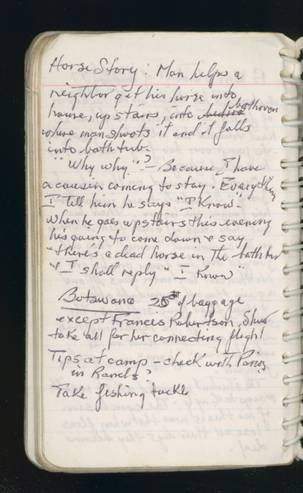 Horse Story: Man helps a
neighbor get his horse into
house, up stairs, into bathroom
where man shoots it and it falls
into bath tub.
"Why why"? - Because I have
a cousin coming to stay. Everything
I tell him he says "I Know".
when he goes upstairs this evening
he's going to come down & say
"there's a dead horse in the bath tub
& I shall reply "I know"
Botswana 25# of baggage
except Frances Robertson, She
take all for her connecting flight
Tips at camp - check with
in Rands?
Take fishing tackle